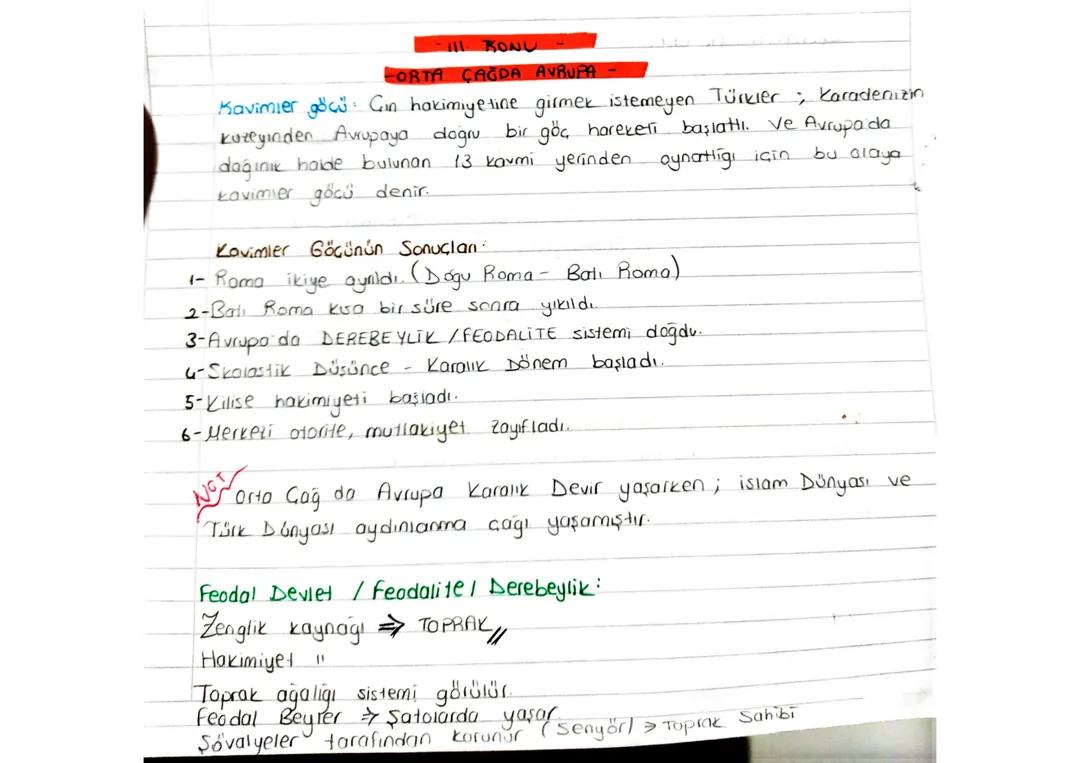 - III. KONU -
- ORTA ÇAĞDA AVRUPA -
Kavimler göçü: Çin hakimiyetine girmek istemeyen Türkler ; Karadenizin
kuzeyinden Avrupaya doğru bir göç hareketi başlattı. Ve Avrupa'da
dağınık halde bulunan 13 kavmi yerinden oynattığı için bu olaya
kavimler göçü denir.
Kavimler Göçünün Sonuçları:
1- Roma ikiye ayrıldı. (Doğu Roma - Batı Roma)
2-Batı Roma kısa bir süre sonra yıkıldı.
3-Avrupa'da DEREBEYLİK / FEODALİTE sistemi doğdu.
4-Skolastik Düşünce - Karalık Dönem başladı.
5-Kilise hakimiyeti başladı.
6-Merkezi otorite, mutlakiyet zayıfladı.
NOT Orta Çağ da Avrupa Karalık Devir yaşarken ; islam Dünyası ve
Türk Dünyası aydınlanma çağı yaşamıştır.
Feodal Devlet / Feodalite / Derebeylik:
Zenglik kaynağı ⇒ TOPRAK //
Hakimiyet "
Toprak ağalığı sistemi görülür.
Feodal Beyler ⇒ Şatolarda yaşar.
Şövalyeler tarafından korunur (Senyör) ⇒ Toprak Sahibi